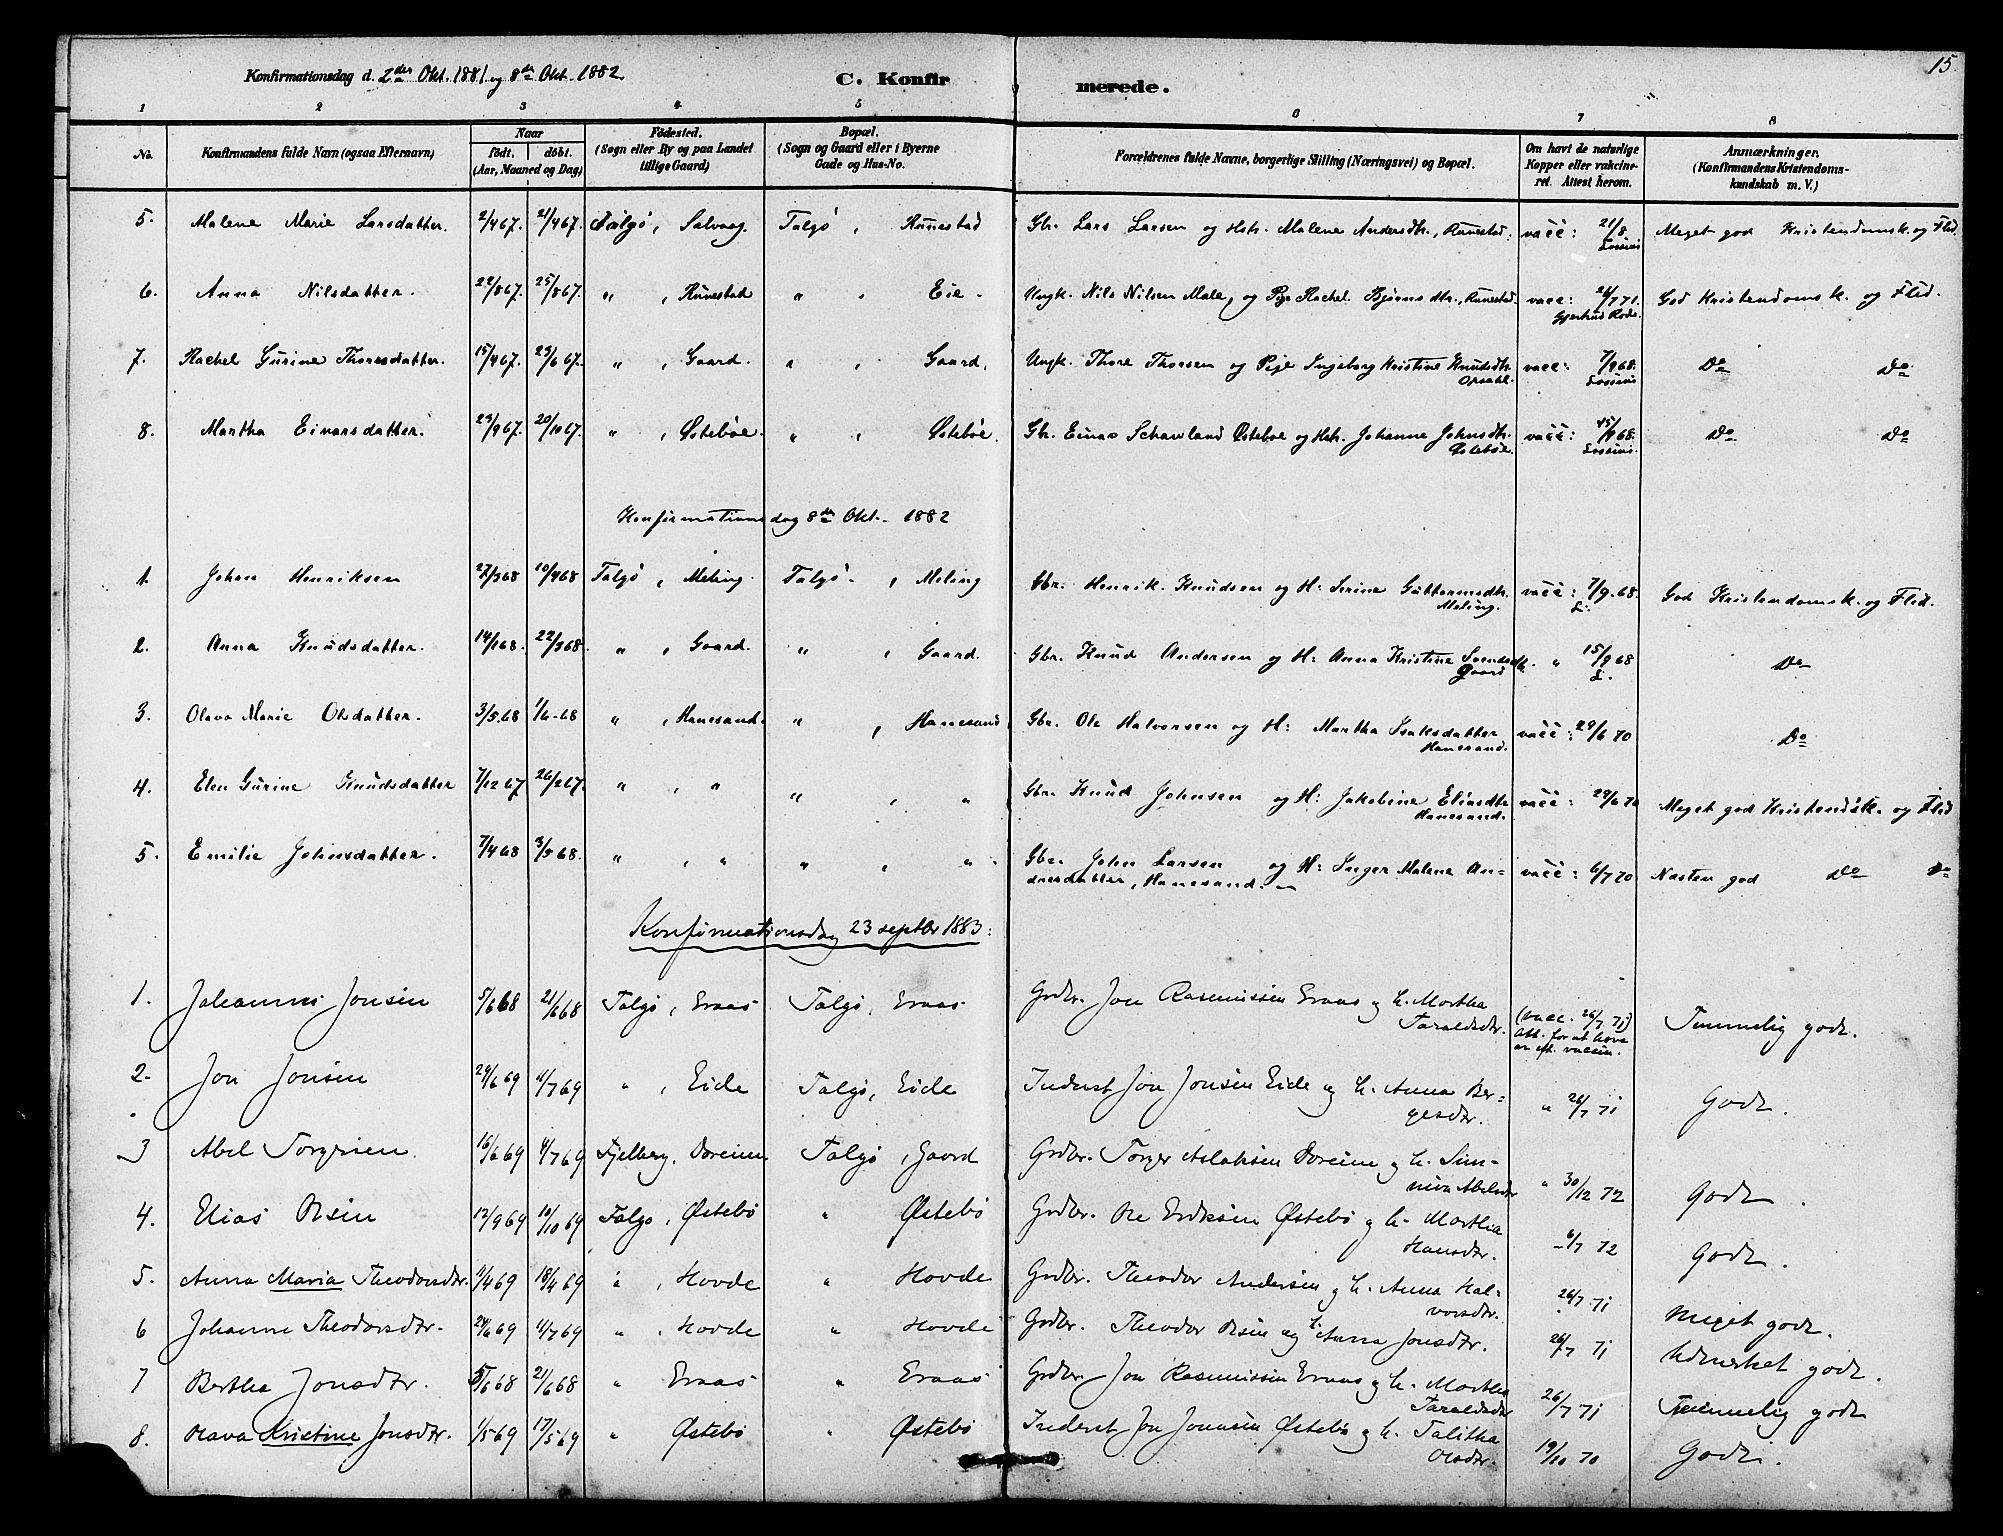 15.
Konfirmationsdag d. 2den Okt. 1881 og 8de Okt. 1882.
C. Konfirmerede.
1 2 3 4 5 6 7 8
No. Konfirmandens fulde Navn (ogsaa Efternavn) Naar født. døbt. (Aar, Maaned og Dag) Fødested. (Sogn eller By og paa Landet tillige Gaard) Bopæl. (Sogn og Gaard eller i Byerne Gade og Hus-No. Forældrenes fulde Navne, borgerlige Stilling (Næringsvei) og Bopæl. Om havt de naturlige Kopper eller vakcineret. Attest herom. Anmærkninger. (Konfirmandens Kristendomskundskab m. V.)
5. Malene Marie Larsdatter. 2/4 67. 21/4 67. Talgø, Salvaag. Talgø, Runestad Gbr. Lars Larsen og Hstr. Malene Andersdtr., Runestad. vacc: 21/8 Meget god Kristendomsk. og Flid.
6. Anna Nilsdatter. 22/8 67. 25/8 67. " , Runestad " , Eie. Ungk. Nils Nilsen Male, og Pige Rachel Bjørnsdtr., Runestad. vacc: 26/7 71. Gjertrud Rode. God Kristendomsk. og Flid.
7. Rachel Gurine Thoresdatter. 15/4 67. 23/6 67. " , Gaard. " , Gaard. Ungk. Thore Thorsen og Pige Ingeborg Kristine Knudsdtr. Opsahl. vacc: 7/9 68. Do Do
8. Martha Einarsdatter. 29/9 67. 20/10 67. " , Østebøe. " , Østebøe. Gbr. Einar Schawland Østeboe og Hstr. Johanne Johnsdtr. Østebøe. vacc: 15/9 68. Do Do
Konfirmationsdag 8de Okt. 1882
1. Johan Henriksen 27/3 68 10/4 68 Talgø, Meling. Talgø, Meling Gbr. Henrik Knudsen og H: Serine Guttormsdtr. Meling. vacc: 7/9. 68. God Kristendomsk. og Flid.
2. Anna Knudsdatter. 14/1 68. 22/3 68. " , Gaard. " , Gaard. Gbr. Knud Andersen og H: Anna Kristine Svendsdtr. Gaard " 15/9 68 Do
3. Olava Marie Olsdatter. 3/5. 68 1/6. 68 " , Hanesand. " , Hanesand. Gbr. Ole Halvorsen og H: Martha Isaksdatter Hanesand. vacc: 29/6 70 Do
4. Elen Gurine Knudsdatter 7/12 67 26/12 67. " , " " , " Gbr. Knud Johnsen og H: Jakobine Eliasdtr. Hanesand. vacc: 29/6 70 Meget god Kristendsk. og Flid
5. Emilie Johnsdatter. 7/4 68 3/5 68. " , " " , " Gbr. John Larsen og H: Inger Malene Andreasdatter, Hanesand. vacc: 6/7 70 Næsten god Do Do
Konfirmationsdag 23 septbr 1883:
1. Johannes Jonsen 5/6 68 21/6 68 Talgø, Eraas Talgø, Eraas Grdbr. Jon Rasmussen Eraas og h. Martha Taraldsdtr. (vacc. 26/7 71) Temmelig godt.
2. Jon Jonsen 29/6 69 11/7 69 " , Eide Talgø, Eide Inderst Jon Jonsen Eide og h. Anna Bergesdtr. " 26/7 71 Godt.
3 Abel Torgersen. 16/6 69 4/7 69 Fjelberg, Talgø, Gaard Grdbr. Torger Aslaksen og h. Sunniva Abelsdtr " 30/12 72 Godt.
4. Elias Olsen 12/9 69 10/10 69 Talgø, Østebø " Østebø Grdbr. Ole Eriksen Østebø og h. Martha Hansdtr. 6/7 72 Godt.
5. Anna Maria Theodorsdtr. 1/4 69 18/4 69 " , Hovde " Hovde Grdbr. Theodor Andersen og h. Anna Halvorsdtr. 26/7 71 Meget godt.
6 Johanne Theodorsdtr. 24/6 69 11/7 69 " , Hovde " Hovde Grdbr. Theodor Olsen og h. Anna Jonsdtr. 26/7 71 Udmerket godt.
7 Bertha Jonsdtr. 5/6 68 21/6 68 " Eraas " Eraas Grdbr. Jon Rasmussen Eraas og h. Martha Taraldsdtr 26/7 71 Temmelig godt
8. Olava Kristine Jonsdtr. 1/5 69 17/5 69 " Østebø " Østebø Inderst Jon Østebø og h. Talitha Olsdtr. 19/10 70 Godt.